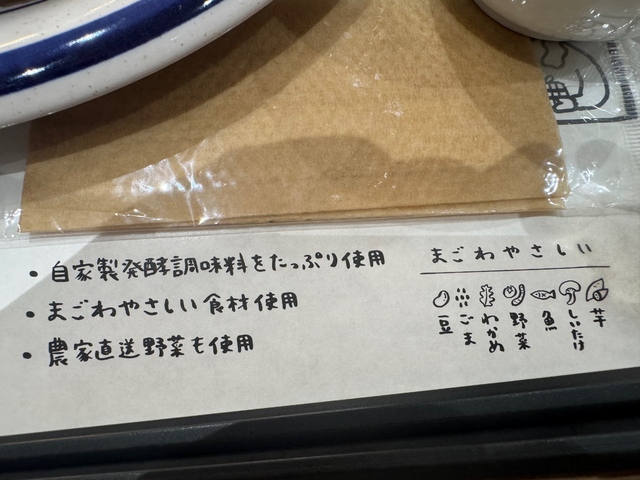 ・自家製発酵調味料をたっぷり使用
・まごわやさしい食材使用
・農家直送野菜も使用
まごわやさしい
豆
ごま
わかめ
野菜
魚
しいたけ
芋